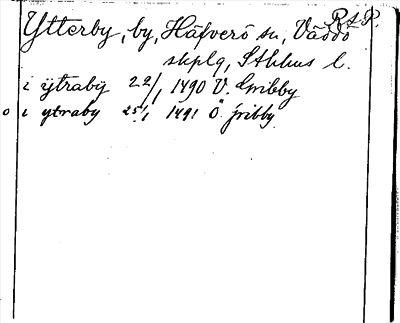 R s P.
Ytterby, by, Häfverö sn, Väddö
skplg, Sthlms l.
i ytraby 22/1 1490 V. Gribby
o i ytraby 25/1 1491 Ö. Gribby